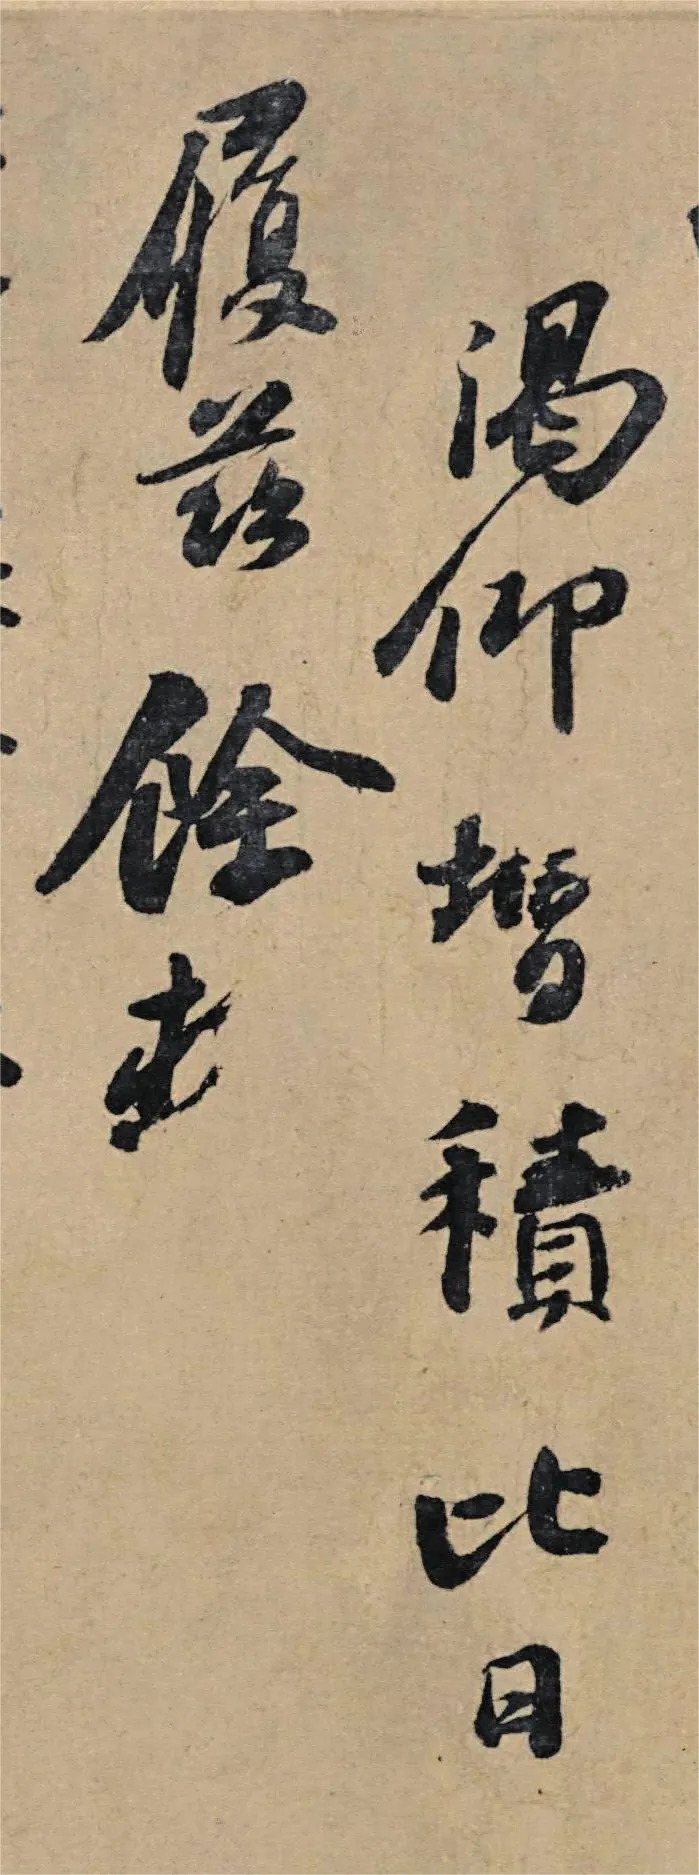 渴仰增積比日
履茲餘春